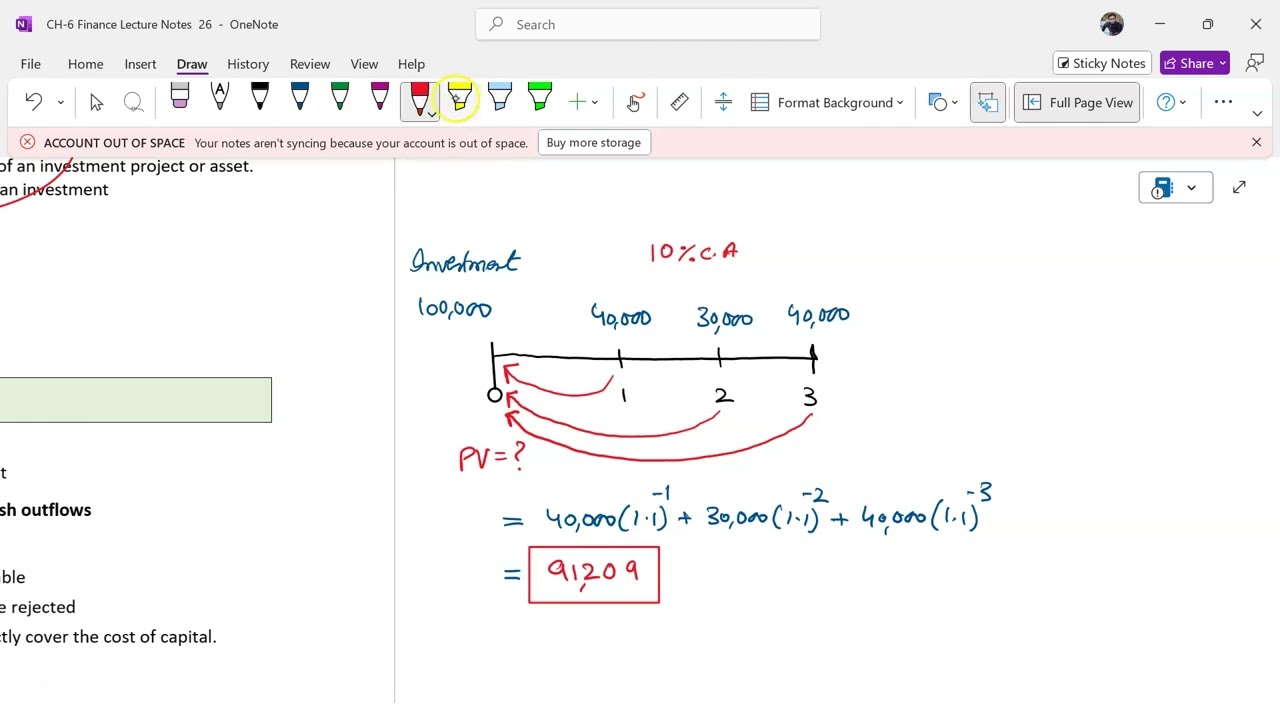 CH-6 Finance Lecture Notes 26 - OneNote
Search
File Home Insert Draw History Review View Help
Sticky Notes Share
Format Background Full Page View
ACCOUNT OUT OF SPACE Your notes aren't syncing because your account is out of space. Buy more storage
of an investment project or asset.
an investment
t
sh outflows
able
e rejected
ctly cover the cost of capital.
Investment 10% C.A
100,000 40,000 30,000 40,000
0 1 2 3
PV = ?
= 40,000(1.1)^-1 + 30,000(1.1)^-2 + 40,000(1.1)^-3
= 91,209